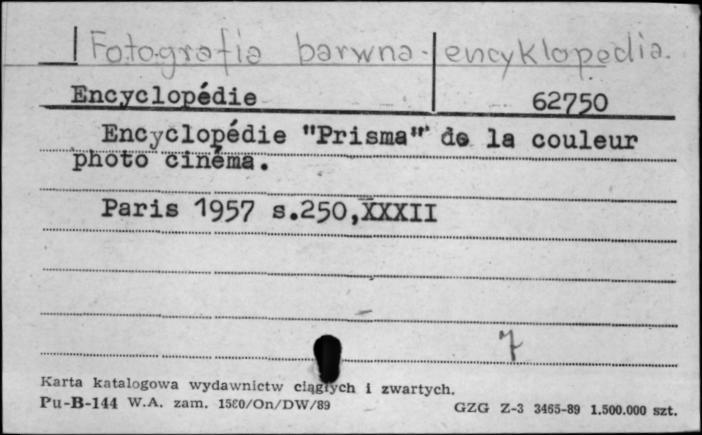 Fotografia barwna - encyklopedia.
Encyclopédie 62750
Encyclopédie "Prisma" de la couleur
photo cinéma.
Paris 1957 s.250,XXXII
7
Karta katalogowa wydawnictw ciągłych i zwartych.
Pu-B-144 W.A. zam. 1580/On/DW/89 GZG Z-3 3465-89 1.500.000 szt.